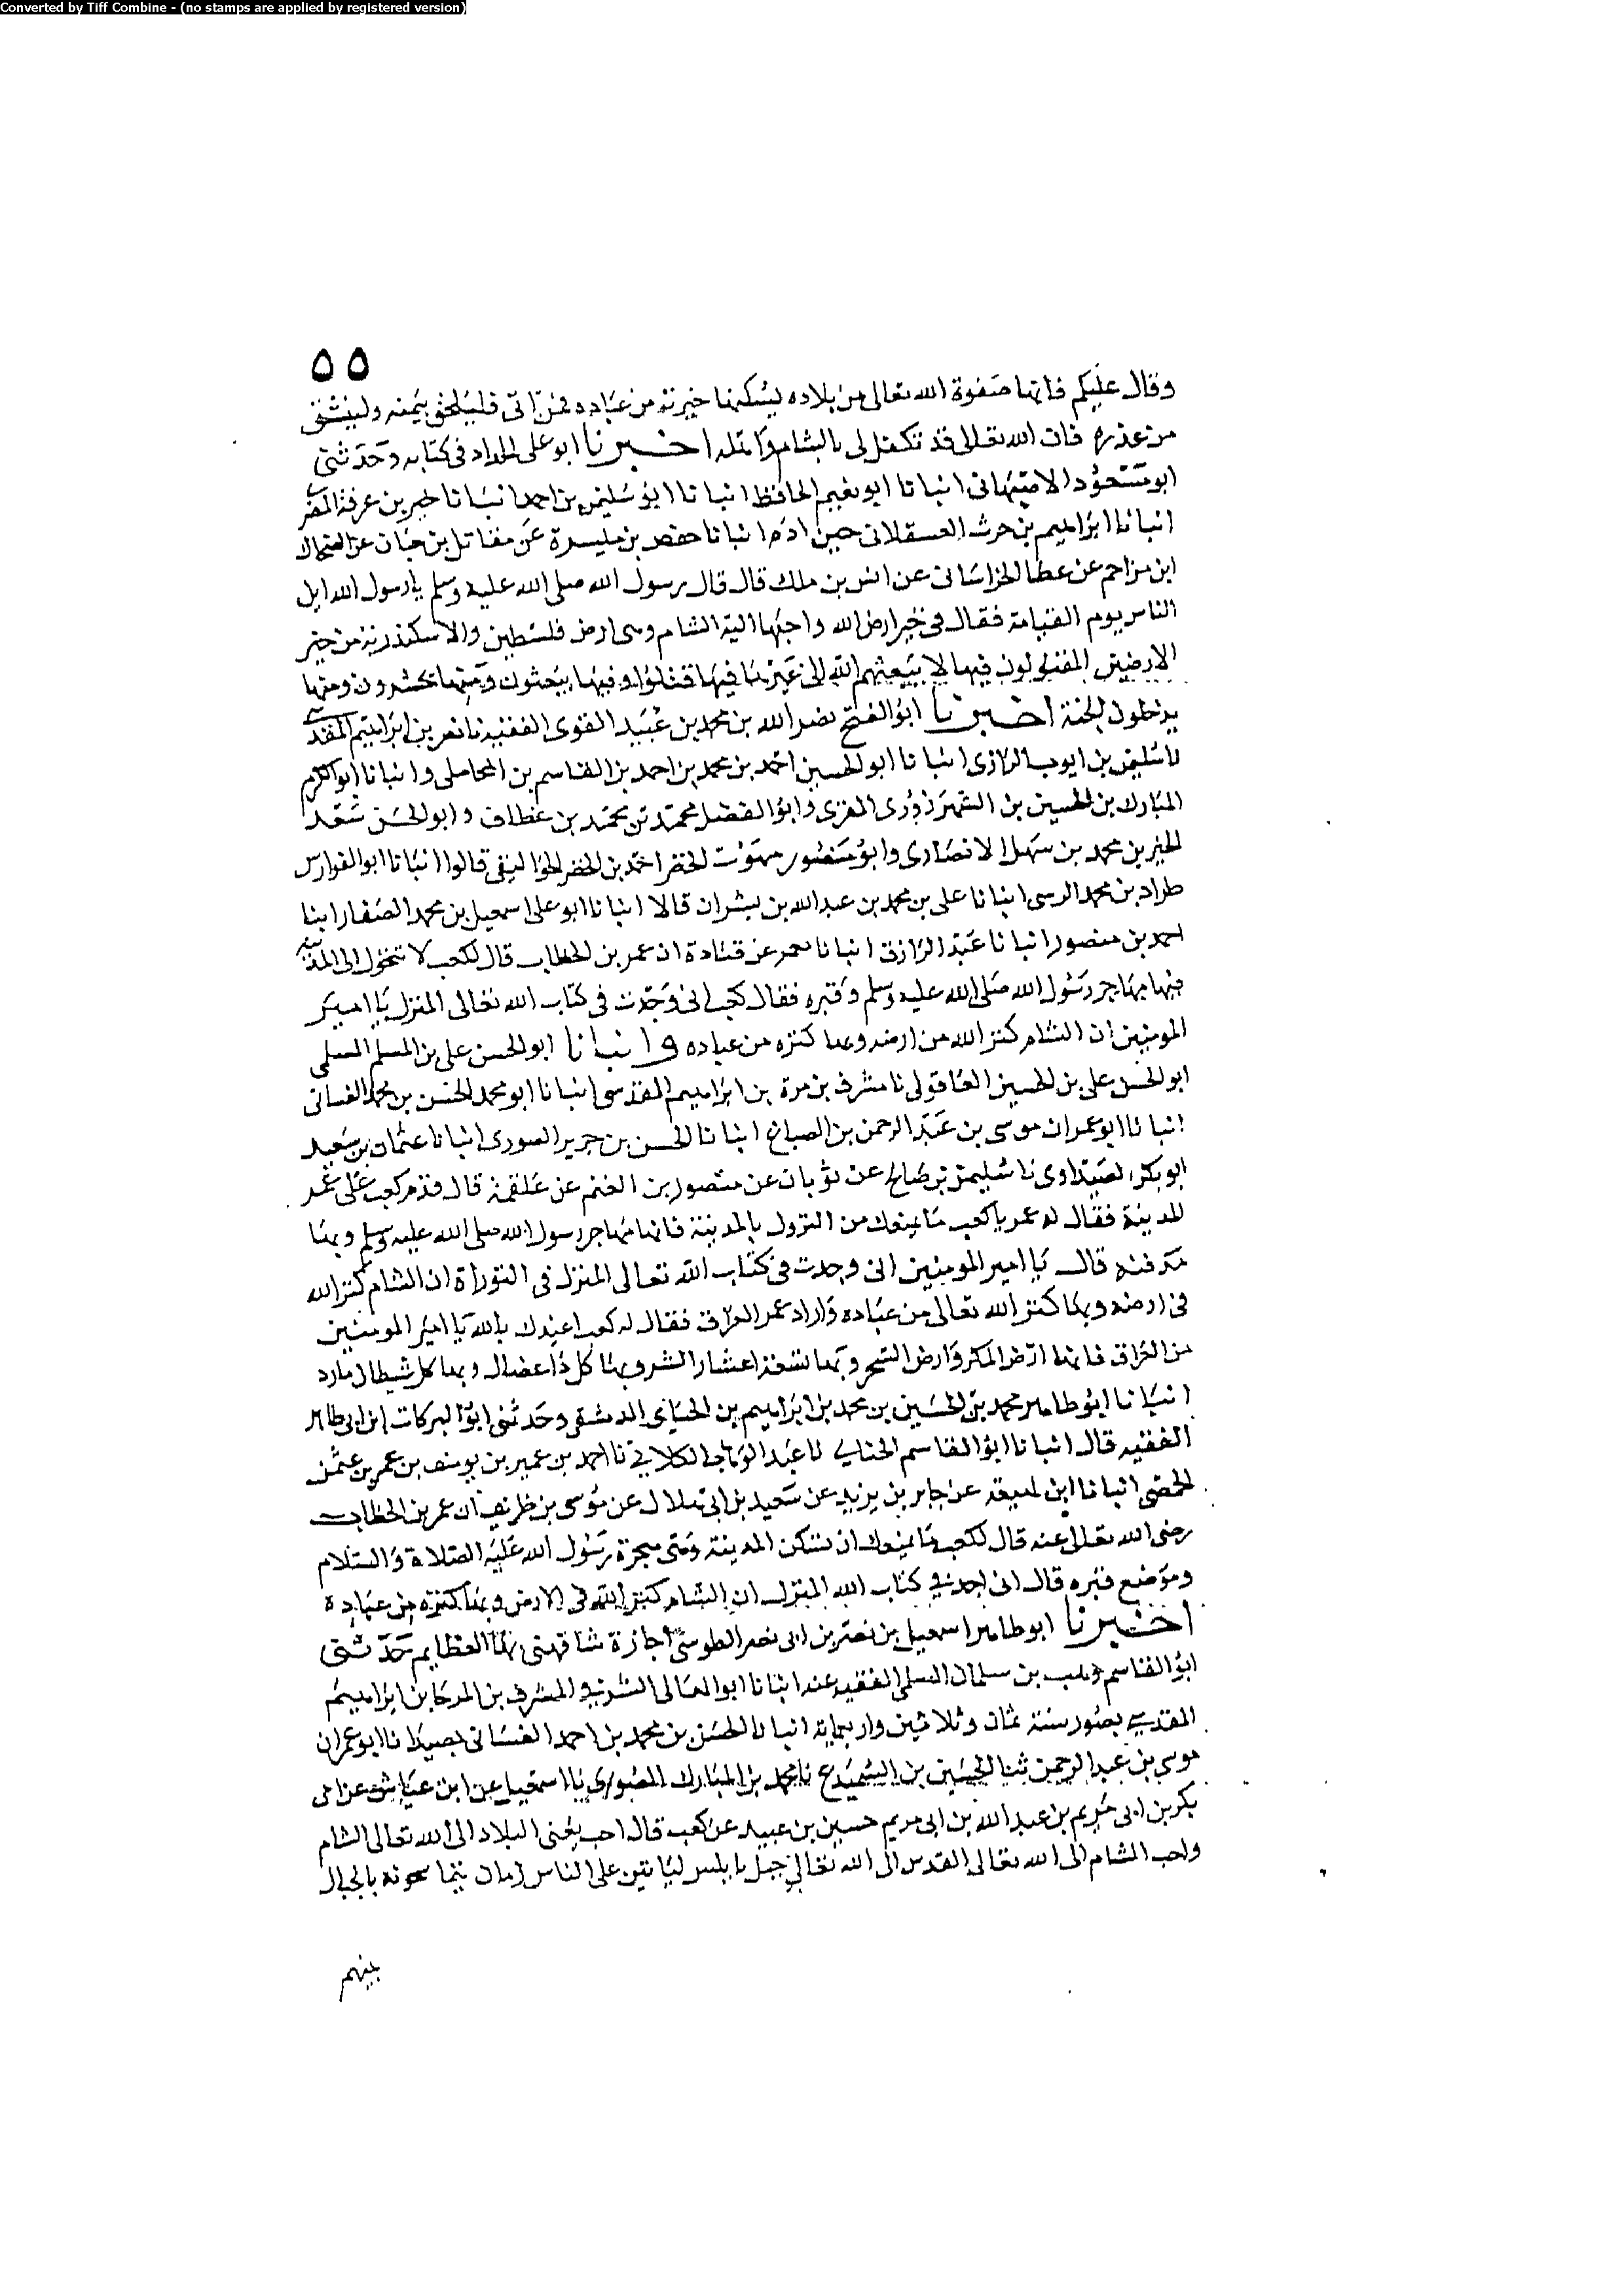 Converted by Tiff Combine - (no stamps are applied by registered version)
٥٥
وقال عليكم فانها صفوة الله تعالى من بلاده ليسكنها خيرته من عباده فمن ابى فليلحق بيمنه وليستق
من عذره فان الله تعالى قد تكفل لى بالشام واهله اخبرنا ابو على الحداد فى كتابه وحدثنى
ابو مسعود الاصبهانى انبانا ابو نعيم الحافظ انبانا ابو سليمن بن احمد انبانا خير بن عرفة المصرى
انبانا ابراهيم بن حرث العسقلانى حين ادم انبانا حفص بن ميسرة عن مقاتل بن حيان عن الضحاك
ابن مزاحم عن عطا الخراسانى عن انس بن ملك قال قال رسول الله صلى الله عليه وسلم يا رسول الله اين
الناس يوم القيامة فقال فى خير ارض الله واحبها اليه الشام وهى ارض فلسطين والاسكندرية من خير
الارضين المقتولون فيها لا يبعثهم الله الى غيرها فيها قتلوا وفيها يبعثون ومنها يحشرون ومنها
يدخلون الجنة اخبرنا ابو الفتح نصر الله بن محمد بن عبيد القوى الفقيه نا نصر بن ابراهيم المقدسى
نا سليم بن ايوب الرازى انبانا ابو الحسين احمد بن محمد بن احمد بن القاسم بن المحاملى وانبانا ابو الكرم
المبارك بن الحسين بن الشهرزورى المقرى وابو الفضل محمد بن محمد بن عطاف وابو الحسن سعد
الخير بن محمد بن سهل الانصارى وابو منصور بن احمد بن الخضر الجواليقى قالوا انبانا ابو الفوارس
طراد بن محمد انبانا على بن محمد بن عبد الله بن بشران قالا انبانا ابو على اسمعيل بن محمد الصفار انبا
احمد بن منصور انبانا عبد الرازق انبانا معمر عن قتادة ان عمر بن الخطاب قال لكعب لا تتحول الى المدينة
فيها مهاجر رسول الله صلى الله عليه وسلم وقبره فقال كعب انى وجدت فى كتاب الله تعالى المنزل يا امير
المومنين ان الشام كنز الله من ارضه وبها كنزه من عباده وانبانا ابو الحسن على بن المسلم السلمى
ابو الحسن على بن الحسين العاقولى نا مشرف بن مرة بن ابراهيم المقدسى انبانا ابو محمد الحسن بن محمد الغسانى
انبانا ابو عمران موسى بن عبد الرحمن بن الصباغ انبانا الحسن بن جرير الصورى انبانا عثمان بن سعيد
ابو بكر الصيداوى نا سليمن بن صالح عن ثوبان عن منصور بن عن علقمة قال قدم كعب على عمر
المدينة فقال له عمر يا كعب ما يمنعك من النزول بالمدينة فانها مهاجر رسول الله صلى الله عليه وسلم وبها
مدفنه قال يا امير المومنين انى وجدت فى كتاب الله تعالى المنزل فى التوراة ان الشام كنز الله
فى ارضه وبها كنز الله تعالى من عباده واراد عمر العراق فقال له كعب اعيذك بالله يا امير المومنين
من العراق فانها ارض المكر وارض السحر وبها تسعة اعشار الشر وبها كل داء عضال وبها كل شيطان مارد
انبانا ابو طاهر محمد بن الحسين بن محمد بن ابراهيم بن الحنائى الدمشقى وحدثنى ابو البركات ابن ابى طاهر
الفقيه قال انبانا ابو القاسم الحنائى نا عبد الوهاب الكلابى نا احمد بن عمير بن يوسف بن عمر بن عثمن
الحمصى انبانا ابن لهيعة عن جابر بن يزيد عن سعيد بن ابى هلال عن موسى بن ظريف ان عمر بن الخطاب
رضى الله تعالى عنه قال لكعب ما يمنعك ان تسكن المدينة وهى هجرة رسول الله عليه الصلاة والسلام
وموضع قبره قال انى اجد فى كتاب الله المنزل ان الشام كنز الله فى الارض وبها كنزه من عباده
اخبرنا ابو طاهر اسمعيل بن نصر بن ابى نصر الطوسى اجازة شافهنى بها حدثنى
ابو القاسم وهب بن سلمان السلمى الفقيه عنه انبانا ابو المعالى المشرف بن المرجا بن ابراهيم
المقدسى بصور سنة ثمان وثلاثين واربعماية انبانا الحسن بن محمد بن احمد الغسانى بصيدا نا ابو عمران
موسى بن عبد الرحمن ثنا الحسين بن السميدع نا محمد بن المبارك الصورى نا اسمعيل عن ابن عياش عن ابى
بكر بن ابى مريم بن عبد الله بن ابى مريم حسين بن عبيد عن كعب قال احب يعنى البلاد الى الله تعالى الشام
واحب الشام الى الله تعالى القدس الى الله تعالى جبل نابلس لياتين على الناس زمان بالجبال
بينهم